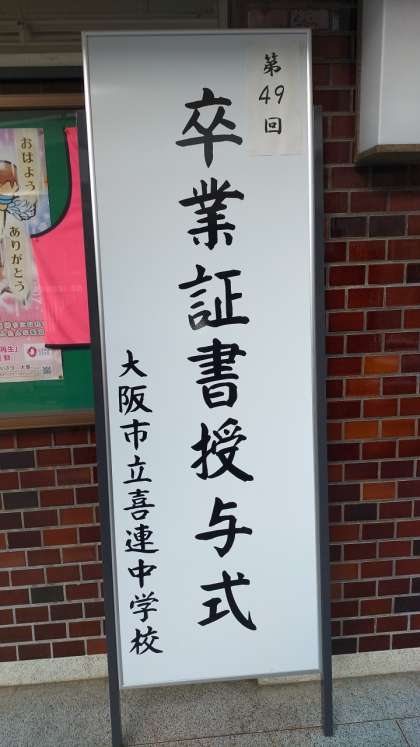 第49回
卒業証書授与式
大阪市立喜連中学校
おはよう
ありがとう